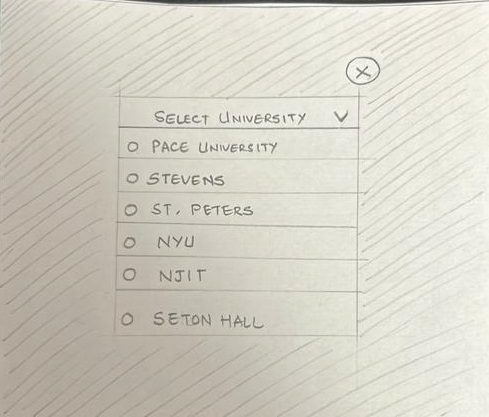 SELECT UNIVERSITY
PACE UNIVERSITY
STEVENS
ST. PETERS
NYU
NJIT
SETON HALL